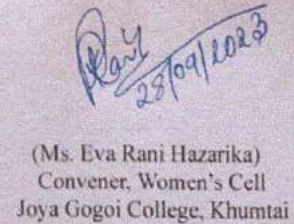 28/09/2023
(Ms. Eva Rani Hazarika)
Convener, Women's Cell
Joya Gogoi College, Khumtai